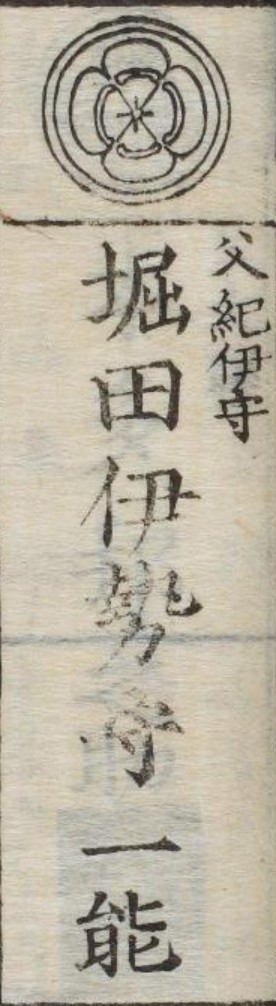 父紀伊守
堀田伊勢守一能